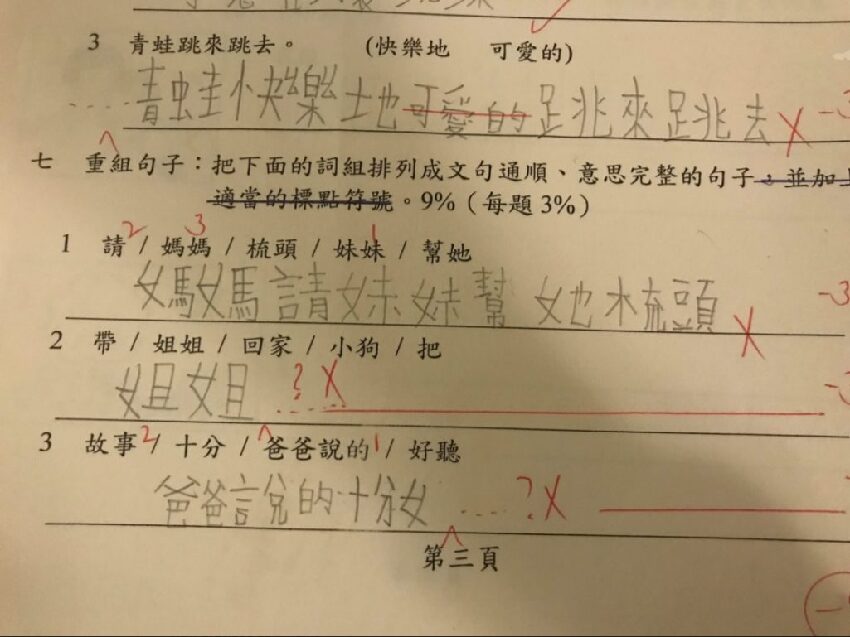 3 青蛙跳來跳去。 (快樂地 可愛的)
青蛙快樂地可愛的跳來跳去 X -3
七 重組句子：把下面的詞組排列成文句通順、意思完整的句子，並加上
適當的標點符號。9%（每題3%）
2 3 1
1 請 / 媽媽 / 梳頭 / 妹妹 / 幫她
媽媽請妹妹幫她梳頭 X -3
2 帶 / 姐姐 / 回家 / 小狗 / 把
姐姐 ? X
2 1
3 故事 / 十分 / 爸爸說的 / 好聽
爸爸說的十分 ? X
第三頁